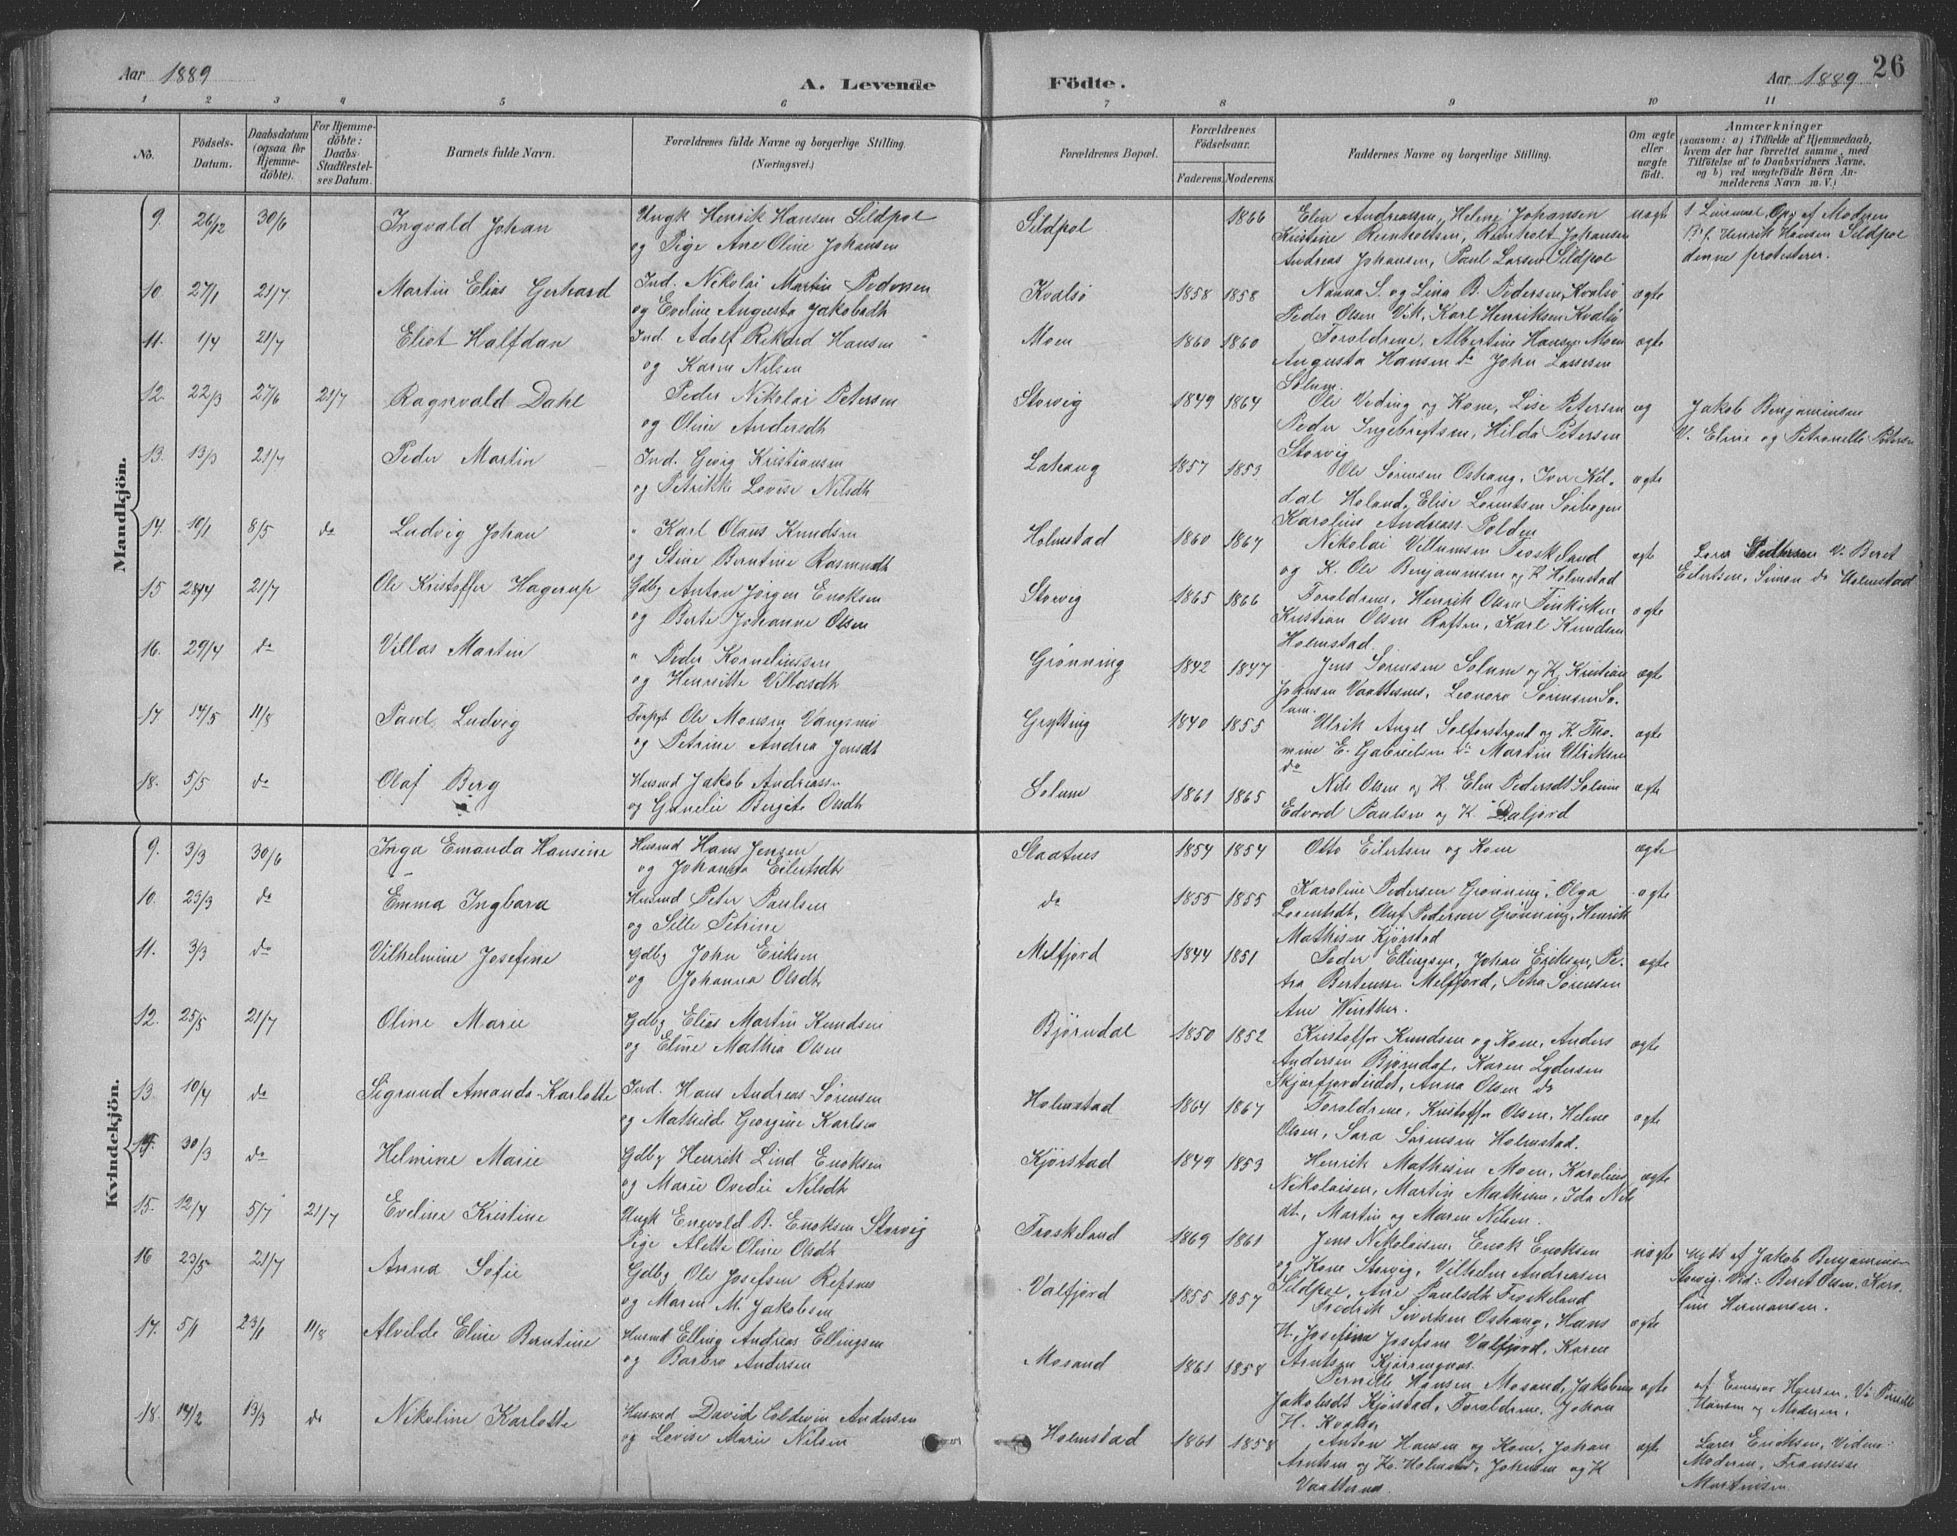 Aar 1889
A. Levende Födte.
Aar 1889
26
1 2 3 4 5 6 7 8 9 10 11
No.
Födsels-Datum.
Daabsdatum (ogsaa for Hjemme-döbte).
For Hjemme-döbte: Daabs-Stadfæstelses Datum.
Barnets fulde Navn.
Forældrenes fulde Navne og borgerlige Stilling.
(Næringsvei.)
Forældrenes Bopæl.
Forældrenes Födselsaar.
Faderens. Moderens.
Faddernes Navne og borgerlige Stilling.
Om ægte eller uægte födt.
Anmærkninger
(saasom: a) i Tilfælde af Hjemmedaab, hvem der har forrettet samme, med Tilföielse af to Daabsvidners Navne, og b) ved uægtefödte Börn Anmelderens Navn m. V.)
Mandkjön.
9. 26/12 30/6 Ingvald Johan
Ungk Henrik Hansen Sildpol
og Pige Ane Oline Johansen
Sildpol 1866
Elen Andreassen, Helene Johansen
Kristine Reinholtsen, Reinholt Johansen
Andreas Johansen, Paul Larsen Sildpol
uægte
Opg af Moderen
Henrik Hansen Sildpol
denne protesterer.
10. 27/1 21/7 Martin Elias Gerhard
Ind. Nikolai Martin Pedersen
og Eveline Angusta Jakobsdt
Kvalsø 1858 1858
Nanna S. og Lina B. Pedersen, Kvalsø
Peder Olsen Vik, Karl Henriksen Kvalsø
ægte
11. 1/4 21/7 Eliot Halfdan
Ind Adolf Rikard Hansen
og Karen Nilsen
Moen 1860 1860
Forældrene, Albertine Hansen Moen
Augusta Hansen do John Lassesen
Solum.
ægte
12. 22/3 27/6 21/7 Ragnvald Dahl
Peder Nikolai Petersen
og Oline Andersdt
Storvig 1849 1864
Ole Veding og Kone, Lise Petersen
Peder Ingebrigtsen, Hilda Petersen
Storvig
æg
Jakob Benjaminsen
V. Eline og Petronelle Pedersen
13. 13/3 21/7 Peder Martin
Ind. Georg Kristiansen
og Petrikke Lovise Nilsdt
Lahaug 1857 1853
Ole Sørensen Oshaug, Iver Kil-
dal Holand, Elise Lorentsen
Karoline Andreass Polden
ægte
14. 10/1 8/5 do Ludvig Johan
" Karl Olaus Knudsen
og Stine Berntine Rasmusdt
Holmstad 1860 1867
Nikolai Villumsen Froskeland
og K. Ole Benjaminsen og K Holmstad
ægte
Lars Pedersen V. Beret
Eilertsen, Simon do Holmstad
15 28/4 21/7 Ole Kristoffer Hagerup
Gdbg Anton Jörgen Enoksen
og Berte Johanne Olsen
Storvig 1865 1866
Forældrene, Henrik Olsen
Kristian Olsen Raften, Karl Knudsen
Holmstad
ægte
16. 29/4 do Villas Martin
" Peder Korneliussen
og Henritte Villasdt
Grønning 1842 1847
Jens Sørensen Solum og K Kristian
Johnsen Vaattesnes, Leonora Sørensen So-
lum.
ægte
17 14/5 11/8 Paul Ludvig
Ole Monsen Vangsnø
og Petrine Andrea Jensdt
Grytting 1840 1855
Ulrik Angel Solforstrand og K. Tho-
mine E. Gabrielsen do Martin Ulriksen
do
ægte
18. 5/5 do Olaf Berg
Husmd Jakob Andreassen
og Gunelie Bergite Olsdt
Solum 1861 1865
Nils Olsen og K. Elen Pedersdt Solum
Edvard Paulsen og K. Daljord
ægte
Kvindekjön.
9. 3/3 30/6 Inga Emanda Hansine
Husmd Hans Jensen
og Johanna Eilertsdt
Slaatnes 1854 1854
Otto Eilertsen og Kone
ægte
10. 23/3 do Emma Ingbara
Husmd Peter Paulsen
og Sille Petrine
do 1855 1855
Karoline Pedersen Grønning, Olga
Lorentsdt, Oluf Pedersen Grønning, Henrik
Mathisen Kjørstad
ægte
11. 3/3 do Vilhelmine Josefine
Gdbg John Eriksen
og Johanna Olsdt
Melfjord 1844 1851
Peder Ellingsen, Johan Eriksen, Pe-
tra Berntsen Melfjord, Petra Sørensen
Ane Winther.
ægte
12. 25/5 21/7 Oline Marie
Gdbg Elias Martin Knudsen
og Eline Mathea Olsen
Bjørndal 1850 1852
Kristoffer Knudsen og Kone, Anders
Andersen Bjørndal, Karen Lydersen
Skjærfjordeidet, Anna Olsen do
ægte
13. 10/4 do Sigrund Amanda Karlotte
Ind. Hans Andreas Sørensen
og Mathilde Georgine Karlsen
Holmstad 1864 1867
Forældrene, Kristoffer Olsen, Helene
Olsen, Sara Sørensen Holmstad.
ægte
14. 30/3 do Helmine Marie
Gdbg Henrik Lind Enoksen
og Marie Ovedie Nilsdt
Kjørstad 1849 1853
Henrik Mathisen Moen, Karoline
Nikolaisen, Martin Mathisen, Ida Nils
dt, Martin og Maren Nilsen.
ægte
15. 12/4 5/7 21/7 Eveline Kristine
Ungk Enevold B. Enoksen Storvig
Pige Alette Oline Olsdt
Froskeland 1869 1861
Jens Nikolaisen, Enok Enoksen
og Kone Storvig, Vilhelm Andreasen
Sildpol, Ane Paulsdt Froskeland
uægte
af Jakob Benjaminsen
Storvig. Vid: Beret Olsen, Karo
line Hermansen.
16 23/5 21/7 Anna Sofie
Gdbg Ole Josefsen Refsnes
og Maren M. Jakobsen
Valfjord 1855 1857
Fredrik Siverksen Oshaug, Hans
H., Josefine Josefsen Valfjord, Karen
Arntsen Kjørringnes
ægte
17. 5/1 23/1 11/8 Alvilde Eline Berntine
Husmd Elling Andreas Ellingsen
og Barbro Andersen
Mosand 1861 1858
Pernille Hansen Mosand, Jakobine
Jakobsdt Kjørstad, Forældrene, Johan
H. Kvalsø
ægte
af Hansen, V: Pernille
Hansen og Moderen.
18. 14/2 13/3 do Nikoline Karlotte
Husmd David Andersen
og Lovise Marie Nilsen
Holmstad 1861 1858
Anton Hansen og Kone, Johan
Arntsen og K. Holmstad, Johnsen og K
Vaattesnes
ægte
Lars Eriksen, Vidne:
Moderen, Fransisse
Martinsen